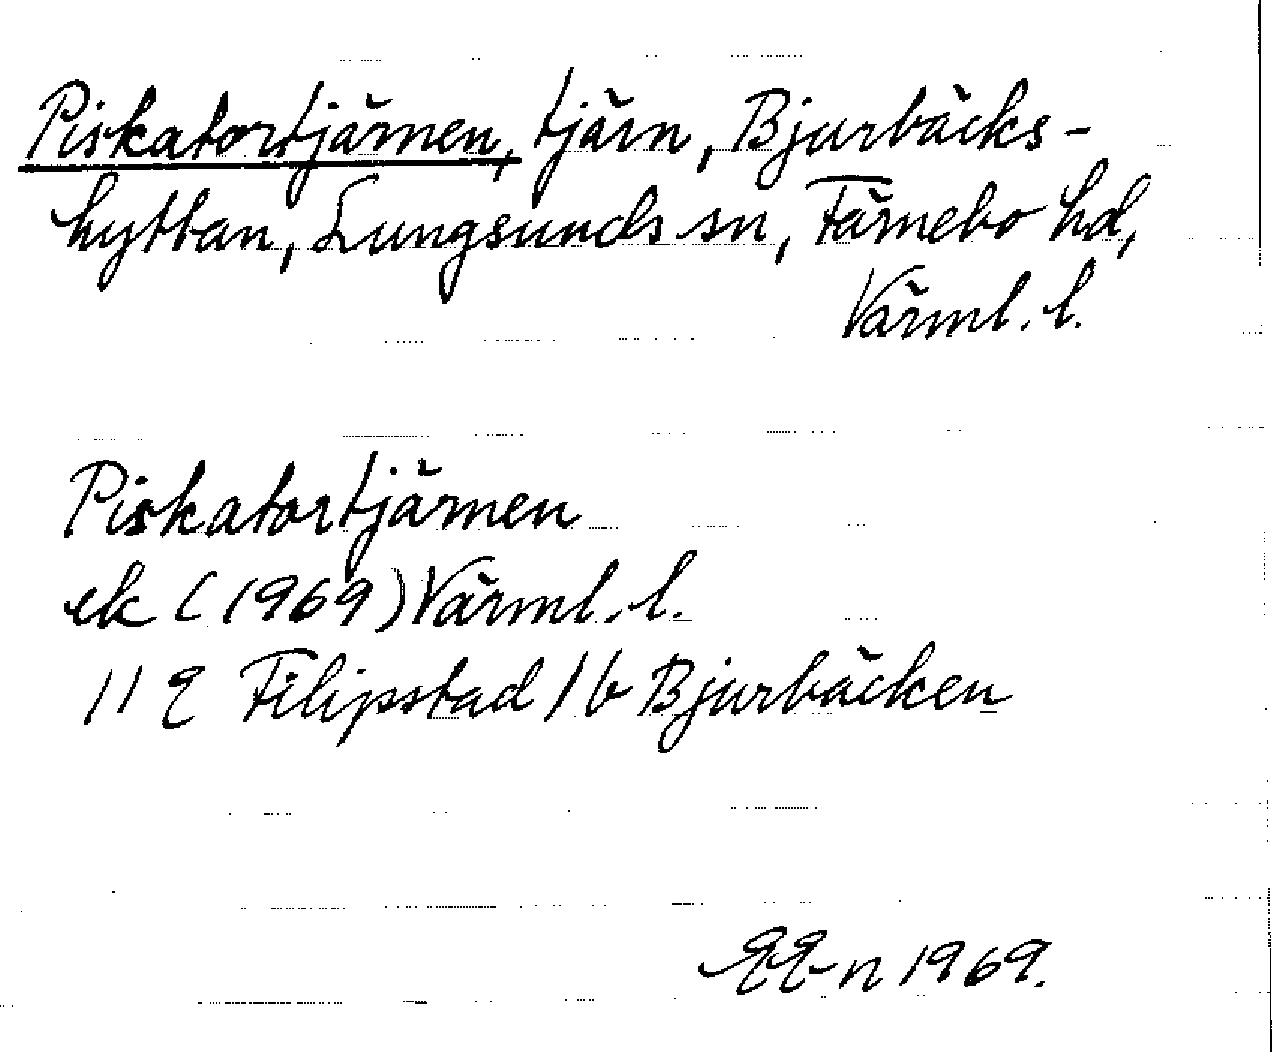 Piskatortjärnen, tjärn, Bjurbäcks-
hyttan, Lungsunds sn, Färnebo hd,
Värml. l.
Piskatortjärnen
ek (1969) Värml. l.
11 E Filipstad 1 b Bjurbäcken
EE-n 1969.